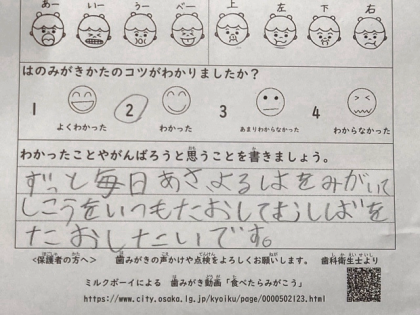 あー いー うー べー 上 左 下 右
はのみがきかたのコツがわかりましたか？
1 2 3 4
よくわかった わかった あまりわからなかった わからなかった
わかったことやがんばろうと思うことを書きましょう。
ずっと毎日あさ、よるはをみがいて
しこうをいつもたおしてむしばを
たおしたいです。
<保護者の方へ> 歯みがきの声かけや点検をよろしくお願いします。 歯科衛生士より
ミルクボーイによる 歯みがき動画「食べたらみがこう」
https://www.city.osaka.lg.jp/kyoiku/page/0000502123.html